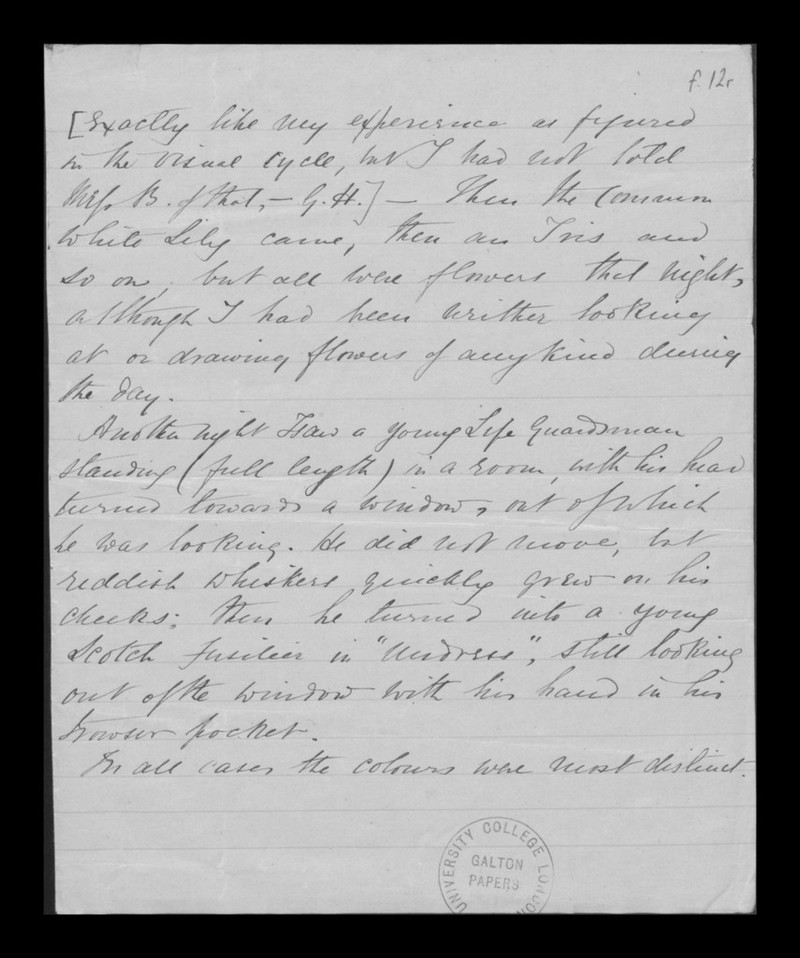 f. 12r
[Exactly like my experience as figured
in the visual cycle, but I had not told
Miss B. of that, — G. H.] — Then the Common
White Lily came, then an Iris and
so on, but all were flowers that night,
although I had been neither looking
at or drawing flowers of any kind during
the day.
Another night I saw a young Life Guardsman
standing (full length) in a room, with his head
turned towards a window, out of which
he was looking. He did not move, but
reddish whiskers quickly grew on his
cheeks; then he turned into a young
Scotch Fusilier in "Undress", still looking
out of the window with his hand in his
trowser pocket.
In all cases the colours were most distinct.
UNIVERSITY COLLEGE LONDON
GALTON
PAPERS